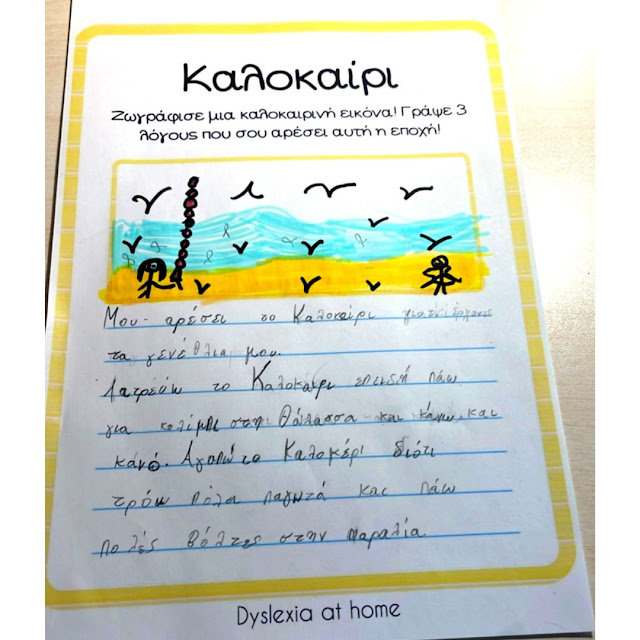 Καλοκαίρι
Ζωγράφισε μια καλοκαιρινή εικόνα! Γράψε 3
λόγους που σου αρέσει αυτή η εποχή!
Μου αρέσει το Καλοκαίρι γιατί έρχοντε
τα γενέθλια μου.
Λατρεύω το Καλοκαίρι επειδή πάω
για κολίμπι στην Θάλασσα και κάνω και
κανό. Αγαπώ το Καλοκέρι διότι
τρόω πολα παγωτά και πάω
πολές βόλτες στην παραλία.
Dyslexia at home